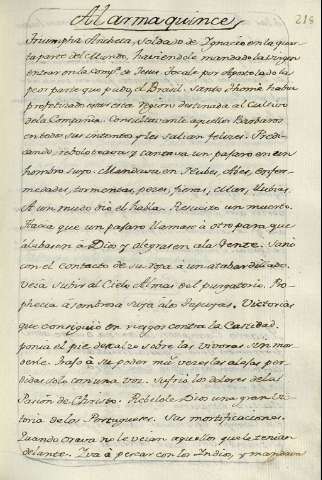 Al arma quince
218
Triumpha Ancheta, soldado de Ignacio en la quar
ta parte del Mundo, haviendole mandado la virgen
entrar en la comp.ª de Jesus. Tocale por Apostolado la
peor parte que pudo, el Brasil. Santo Thomè havia
profetizado estar esta region destinada al Cultivo
de la Compañia. Consultavanle aquellos Barbaros
en todos sus intentos y les salian felizes. Predi
cando, reboloteava y cantava un pajaro en su
hombro suyo. Mandava en Nubes, Aves, enfer
medades, tormentas, pezes, fieras, lluvias.
A un mudo dio el habla. Resucitò un muerto.
Hazia que un pajaro llamase à otro para que
alabasen à Dios y alegrasen a la Jente. Sanò
con el contacto de su ropa à un
Veia subir al Cielo Almas del purgatorio. Pro
phecia asombrosa suya à los Tapuyas. Victorias
que consiguiò en riesgos contra la Castidad.
ponia el pie descalzo sobre las vivoras sin mor
derle. Trajo à su poder mil vezes las alajas per
didas solo con una voz. Sufriò los dolores de la
Pasion de Christo. Rebelole Dios una gran Vic
toria de los Portugueses. Sus mortificaciones.
Quando orava no le veian aquellos que le tenian
delante. Iva à pescar con los Indios, y mandava